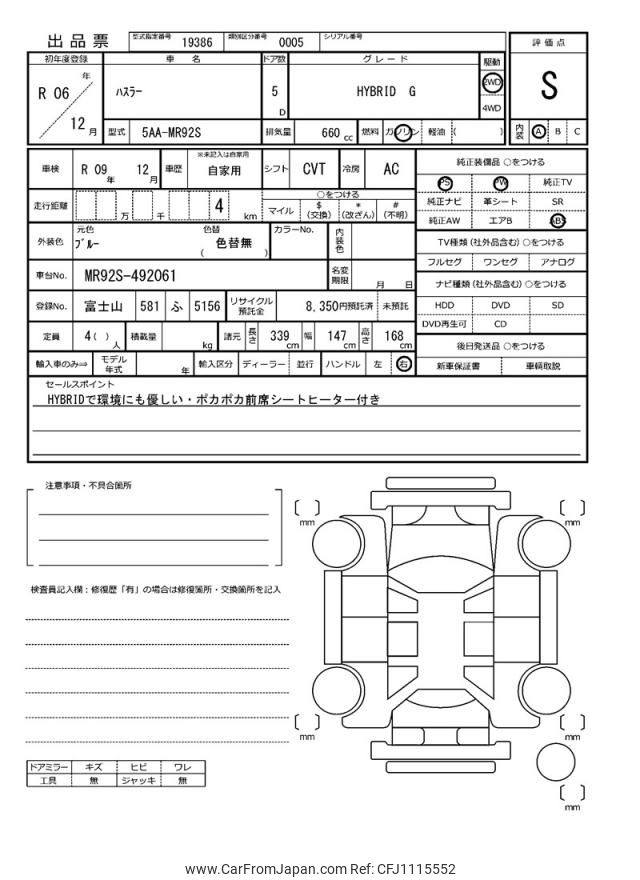 出品票
型式指定番号 19386 類別区分番号 0005 シリアル番号
評価点
初年度登録 車名 ドア数 グレード 駆動
R 06 年 12 月
ハスラー
5 D
HYBRID G
2WD
4WD
S
型式 5AA-MR92S 排気量 660 cc 燃料 ガソリン 軽油 ( )
内装 A B C
車検 R 09 年 12 月 車歴 ※未記入は自家用 自家用 シフト CVT 冷房 AC
純正装備品 ○をつける
PS PW 純正TV
純正ナビ 革シート SR
純正AW エアB ABS
走行距離 万 千 4 km
○をつける
マイル $(交換) *(改ざん) #(不明)
外装色 元色 ブルー 色替 色替無 ( ) カラーNo. 内装色
TV種類(社外品含む)○をつける
フルセグ ワンセグ アナログ
車台No. MR92S-492061 名変期限 月 日
ナビ種類(社外品含む)○をつける
HDD DVD SD
DVD再生可 CD
登録No. 富士山 581 ふ 5156 リサイクル預託金 8,350円預託済 未預託
定員 4( )人 積載量 kg 諸元 長さ 339 cm 幅 147 cm 高さ 168 cm
後日発送品 ○をつける
新車保証書 車輌取説
輸入車のみ⇒ モデル年式 年 輸入区分 ディーラー 並行 ハンドル 左 右
セールスポイント
HYBRIDで環境にも優しい・ポカポカ前席シートヒーター付き
注意事項・不具合箇所
検査員記入欄：修復歴「有」の場合は修復箇所・交換箇所を記入
mm
mm
mm
mm
mm
ドアミラー キズ ヒビ ワレ
工具 無 ジャッキ 無
www.CarFromJapan.com Ref: CFJ1115552